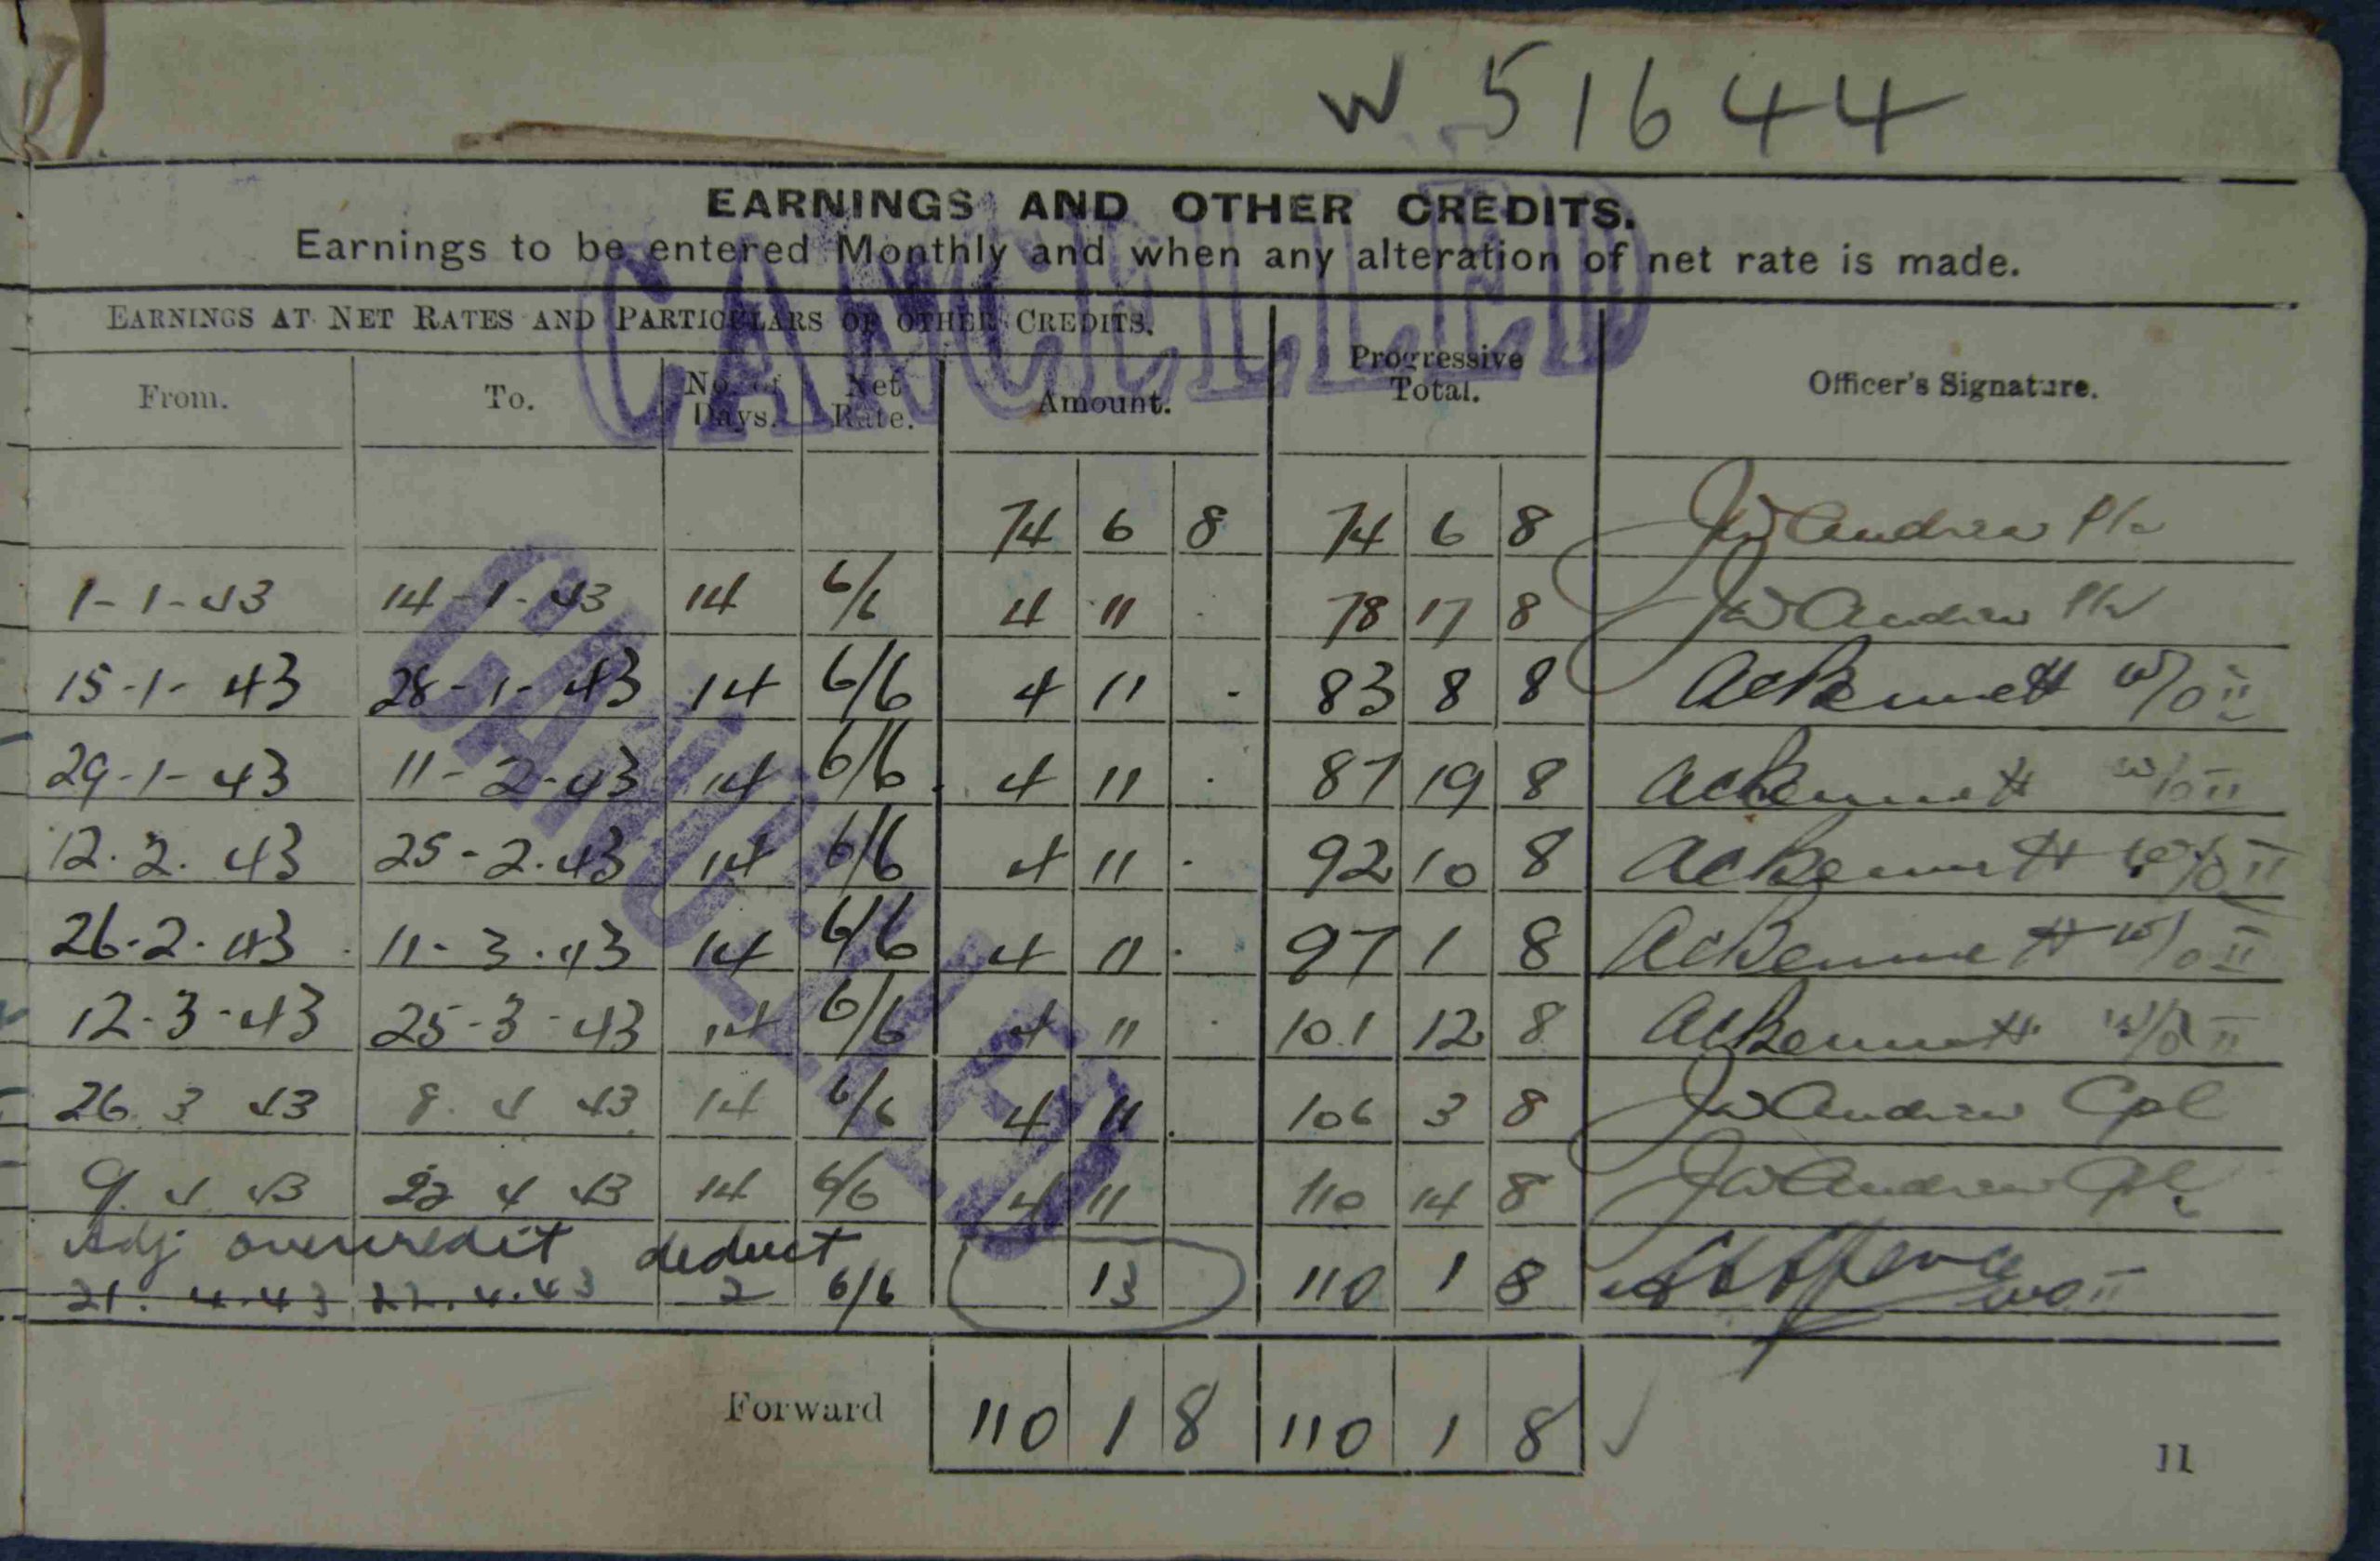 W 51644
EARNINGS AND OTHER CREDITS.
Earnings to be entered Monthly and when any alteration of net rate is made.
CANCELLED
EARNINGS AT NET RATES AND PARTICULARS OF OTHER CREDITS.
From. To. No. of Days. Net Rate. Amount. Progressive Total. Officer's Signature.
74 6 8 74 6 8 JW Andrew
1-1-43 14-1-43 14 6/6 4 11 - 78 17 8 JW Andrew
15-1-43 28-1-43 14 6/6 4 11 - 83 8 8 ACBennett W/O II
29-1-43 11-2-43 14 6/6 4 11 - 87 19 8 ACBennett W/O II
12.2.43 25-2.43 14 6/6 4 11 - 92 10 8 ACBennett W/O II
26.2.43 11-3.43 14 6/6 4 11 - 97 1 8 ACBennett W/O II
12-3-43 25-3-43 14 6/6 4 11 - 101 12 8 ACBennett W/O II
26 3 43 8 4 43 14 6/6 4 11 - 106 3 8 JW Andrew Cpl
9 4 43 22 4 43 14 6/6 4 11 110 14 8 JW Andrew Cpl
Adj overcredit deduct
21.4.43 22.4.43 2 6/6 13 110 1 8 WO II
CANCELLED
Forward 110 1 8 110 1 8
11